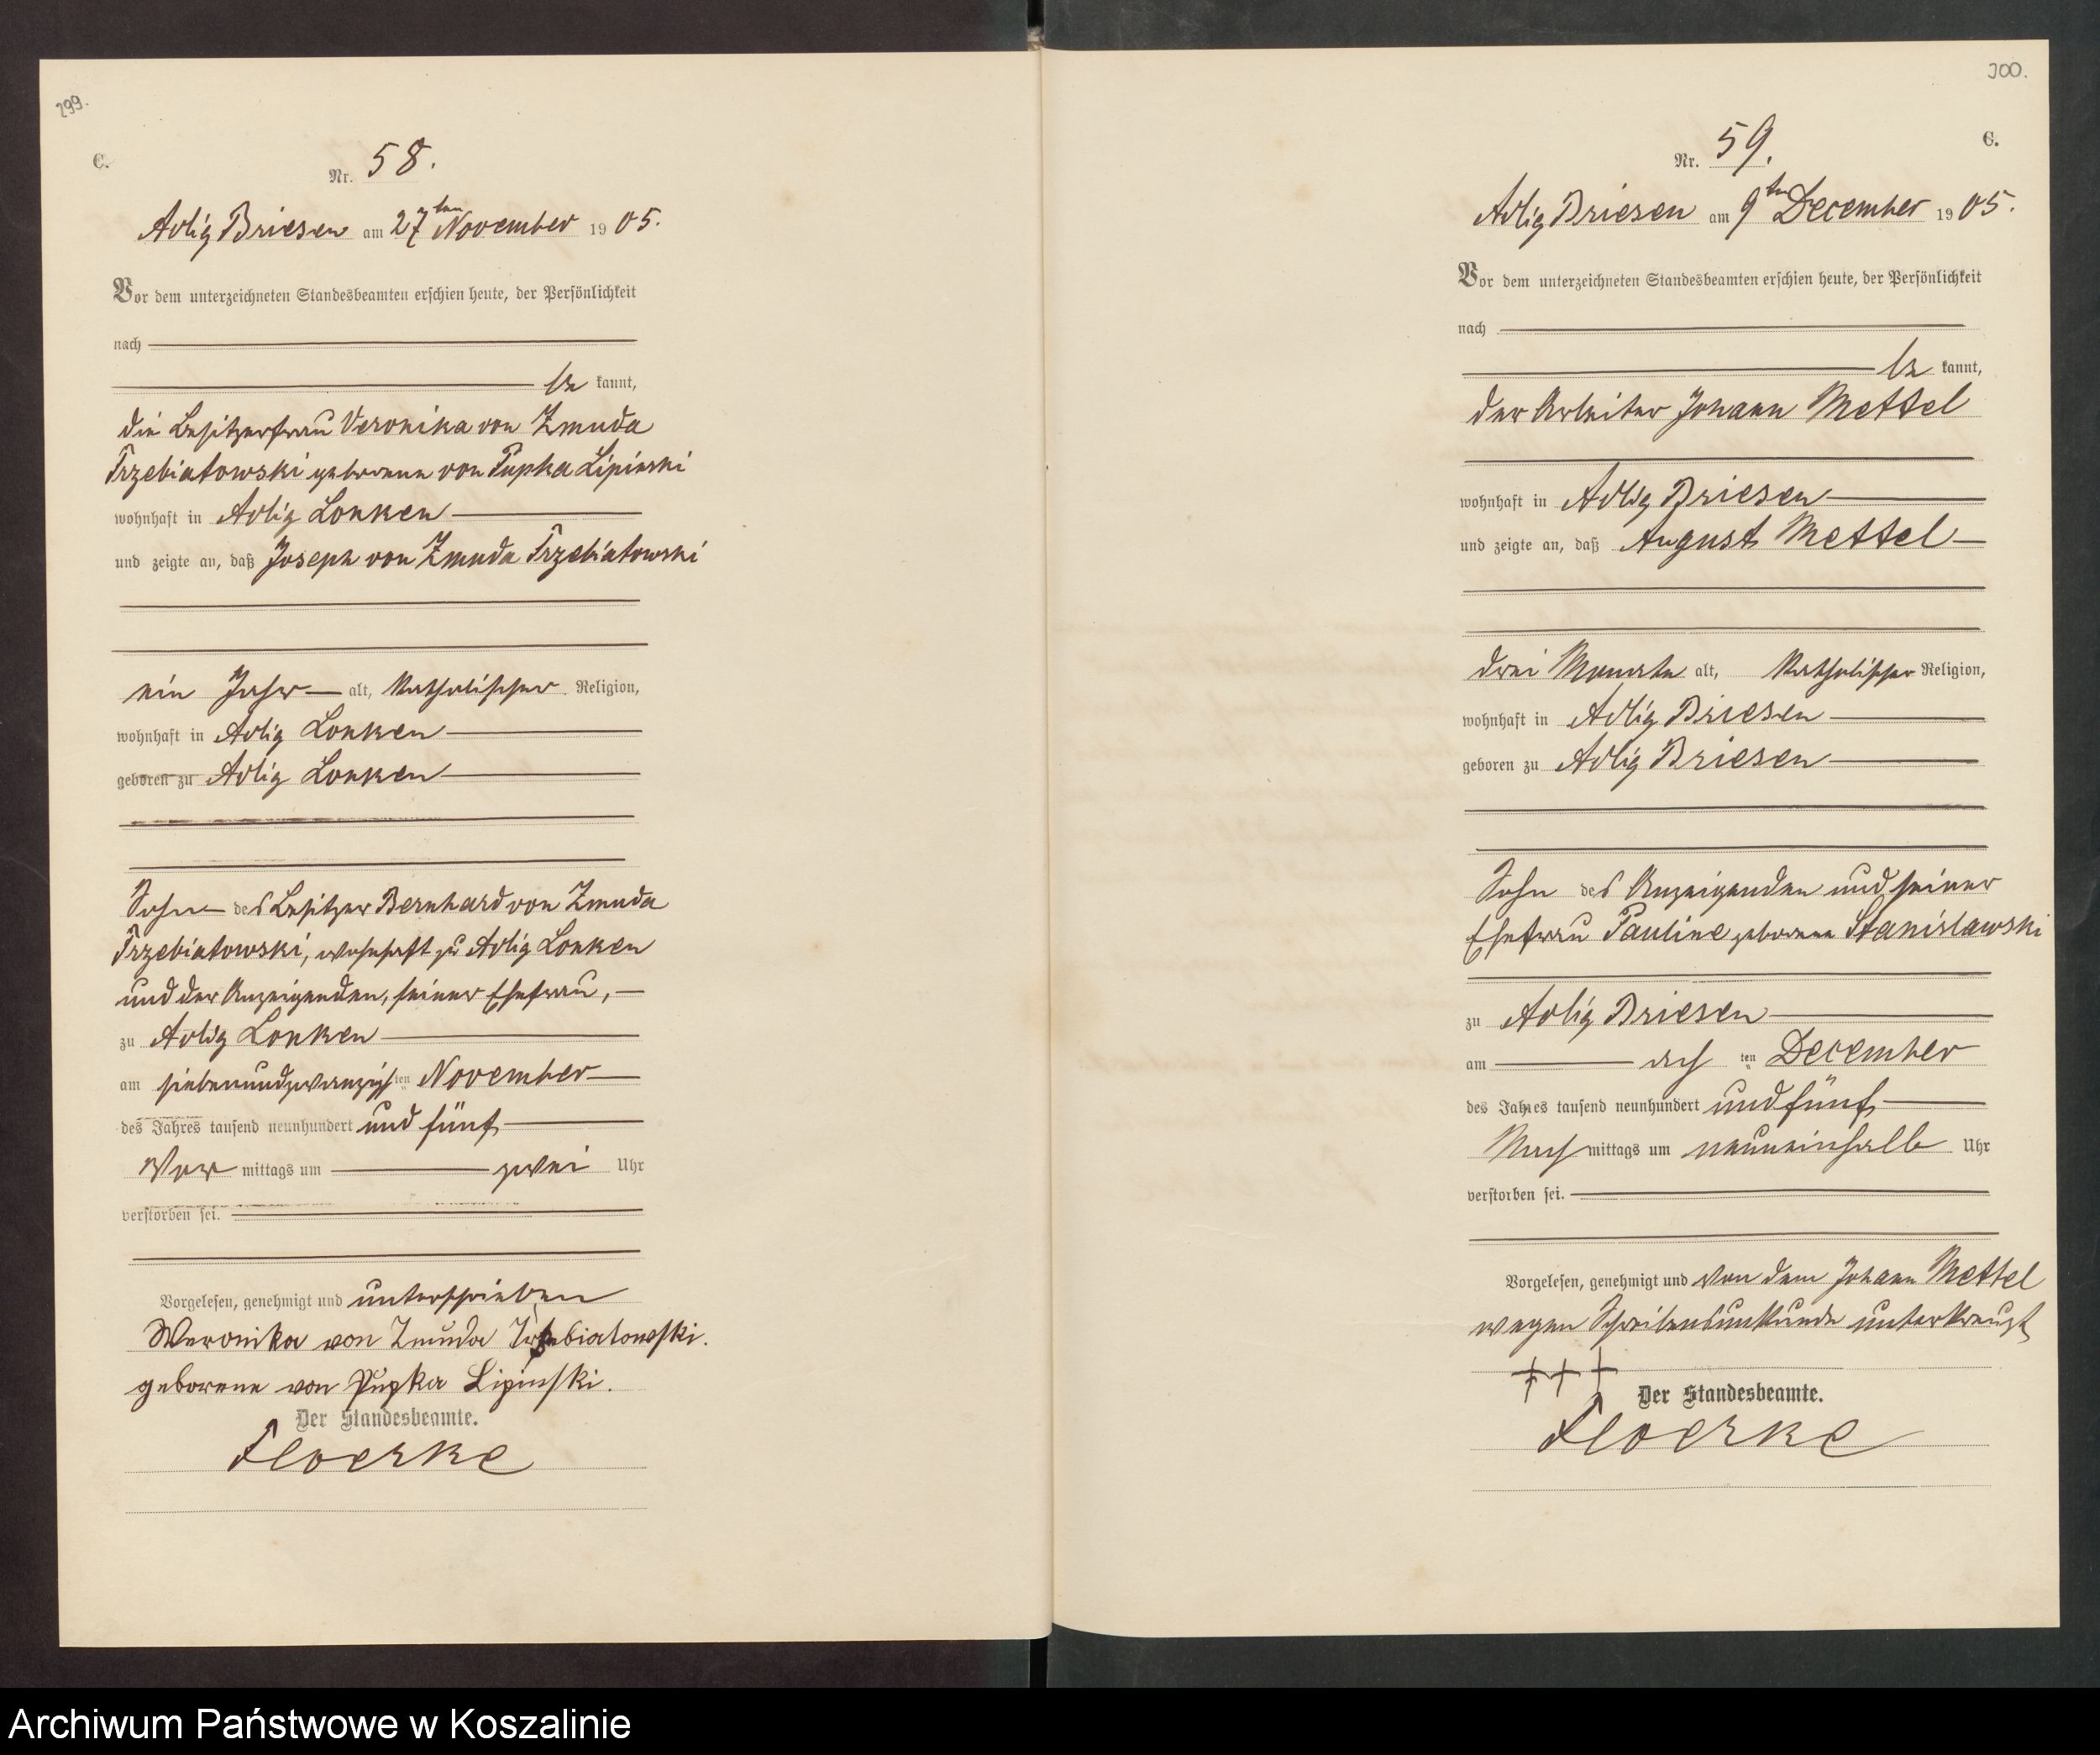 299.
C.
Nr. 58.
Adlig Briesen am 27ten November 1905.
Vor dem unterzeichneten Standesbeamten erschien heute, der Persönlichkeit
nach
be kannt,
die Besitzerfrau Veronika von Zmuda
Trzebiatowski geborene von Pupka Lipinski
wohnhaft in Adlig Lonken
und zeigte an, daß Joseph von Zmuda Trzebiatowski
ein Jahr alt, katholischer Religion,
wohnhaft in Adlig Lonken
geboren zu Adlig Lonken
Sohn des Besitzer Bernhard von Zmuda
Trzebiatowski, wohnhaft zu Adlig Lonken
und der Anzeigenden, seiner Ehefrau,
zu Adlig Lonken
am siebenundzwanzigsten November
des Jahres tausend neunhundert und fünf
Vor mittags um zwei Uhr
verstorben sei.
Vorgelesen, genehmigt und unterschrieben
Weronika von Zmuda Trzebiatowski.
geborene von Pupka Lipinski.
Der Standesbeamte.
Floerke
300.
C.
Nr. 59.
Adlig Briesen am 9ten December 1905.
Vor dem unterzeichneten Standesbeamten erschien heute, der Persönlichkeit
nach
be kannt,
der Arbeiter Johann Mettel
wohnhaft in Adlig Briesen
und zeigte an, daß August Mettel
drei Monate alt, katholischer Religion,
wohnhaft in Adlig Briesen
geboren zu Adlig Briesen
Sohn des Anzeigenden und seiner
Ehefrau Pauline geborene Stanislawski
zu Adlig Briesen
am achten December
des Jahres tausend neunhundert und fünf
Nach mittags um neuneinhalb Uhr
verstorben sei.
Vorgelesen, genehmigt und von dem Johann Mettel
wegen Schreibensunkunde unterkreuzt
+++
Der Standesbeamte.
Floerke
Archiwum Państwowe w Koszalinie